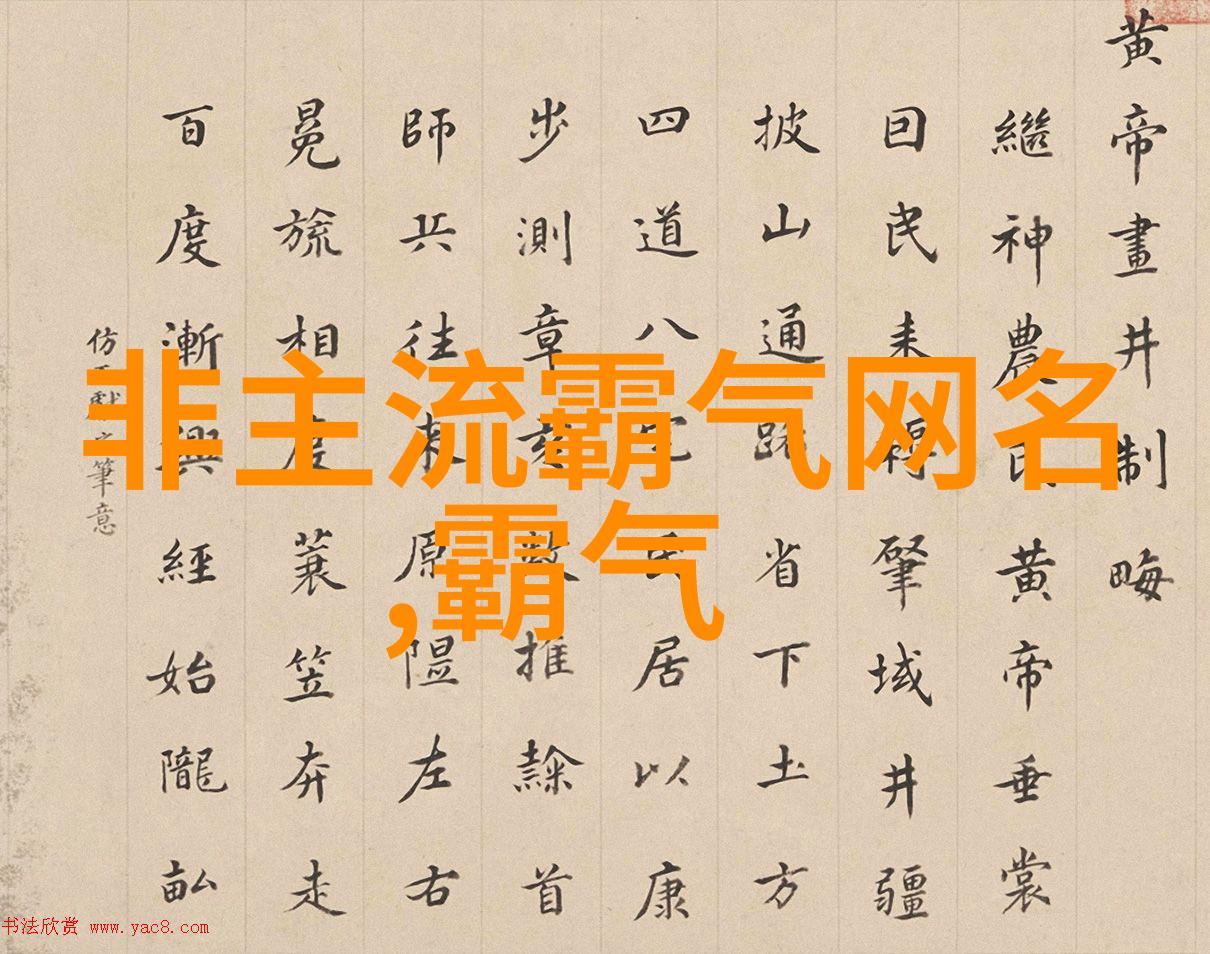 黄帝畫井制畮
繼神農氏黄帝垂裳
囙民耒耨肇域井疆
披山通路省下土方
四道八居以康
步測章數推隸首
師兵往來原隰左右
冕旒相度蓑笠奔走
百度漸興經始隴畝
仿獻之筆意
非主流霸气网名
,霸气
书法欣赏 www.yac8.com